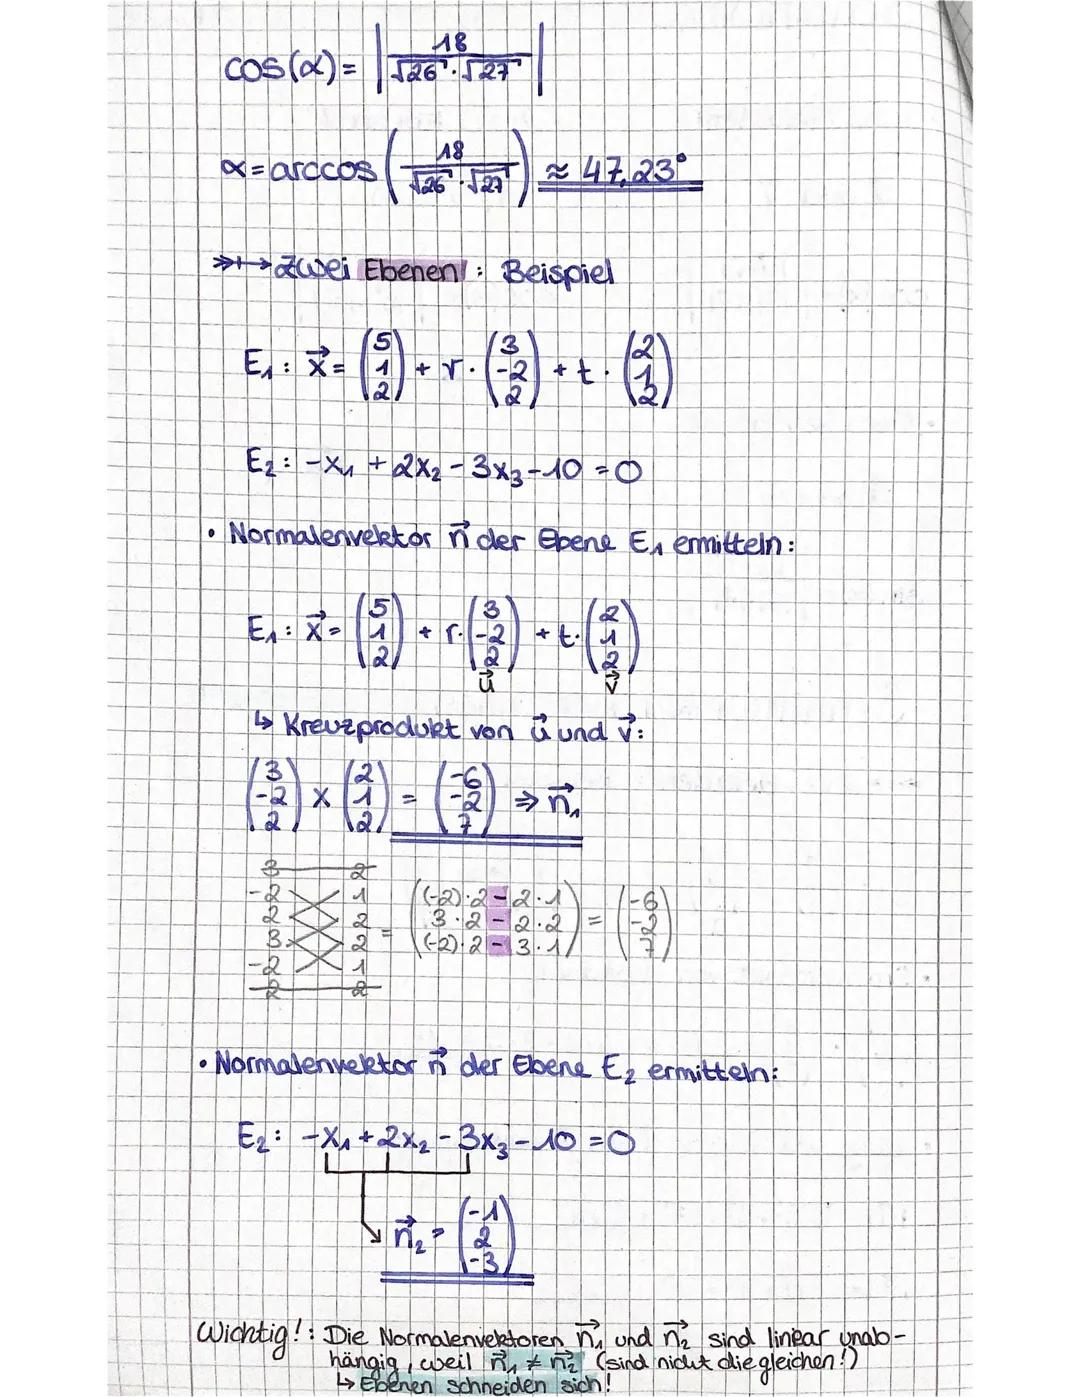 cos(α) = | 18 / (√26 · √27) |
α = arccos ( 18 / (√26 · √27) ) ≈ 47,23°
Zwei Ebenen : Beispiel
E₁ : x⃗ = (5 1 2) + r · (3 -2 2) + t · (2 1 2)
E₂ : -x₁ + 2x₂ - 3x₃ - 10 = 0
• Normalenvektor n⃗ der Ebene E₁ ermitteln :
E₁ : x⃗ = (5 1 2) + r · (3 -2 2) + t · (2 1 2)
u⃗ v⃗
↳ Kreuzprodukt von u⃗ und v⃗ :
(3 -2 2) × (2 1 2) = (-6 -2 7) ⇒ n⃗₁
3 2
-2 1 (-2)·2 - 2·1 -6
2 2 = 3·2 - 2·2 = -2
3 2 (-2)·2 - 3·1 7
-2 1
2 2
• Normalenvektor n⃗ der Ebene E₂ ermitteln :
E₂ : -x₁ + 2x₂ - 3x₃ - 10 = 0
n⃗₂ = (-1 2 -3)
Wichtig! : Die Normalenvektoren n⃗₁ und n⃗₂ sind linear unab-
hängig, weil n⃗₁ ≠ n⃗₂ (sind nicht die gleichen!)
↳ Ebenen schneiden sich!